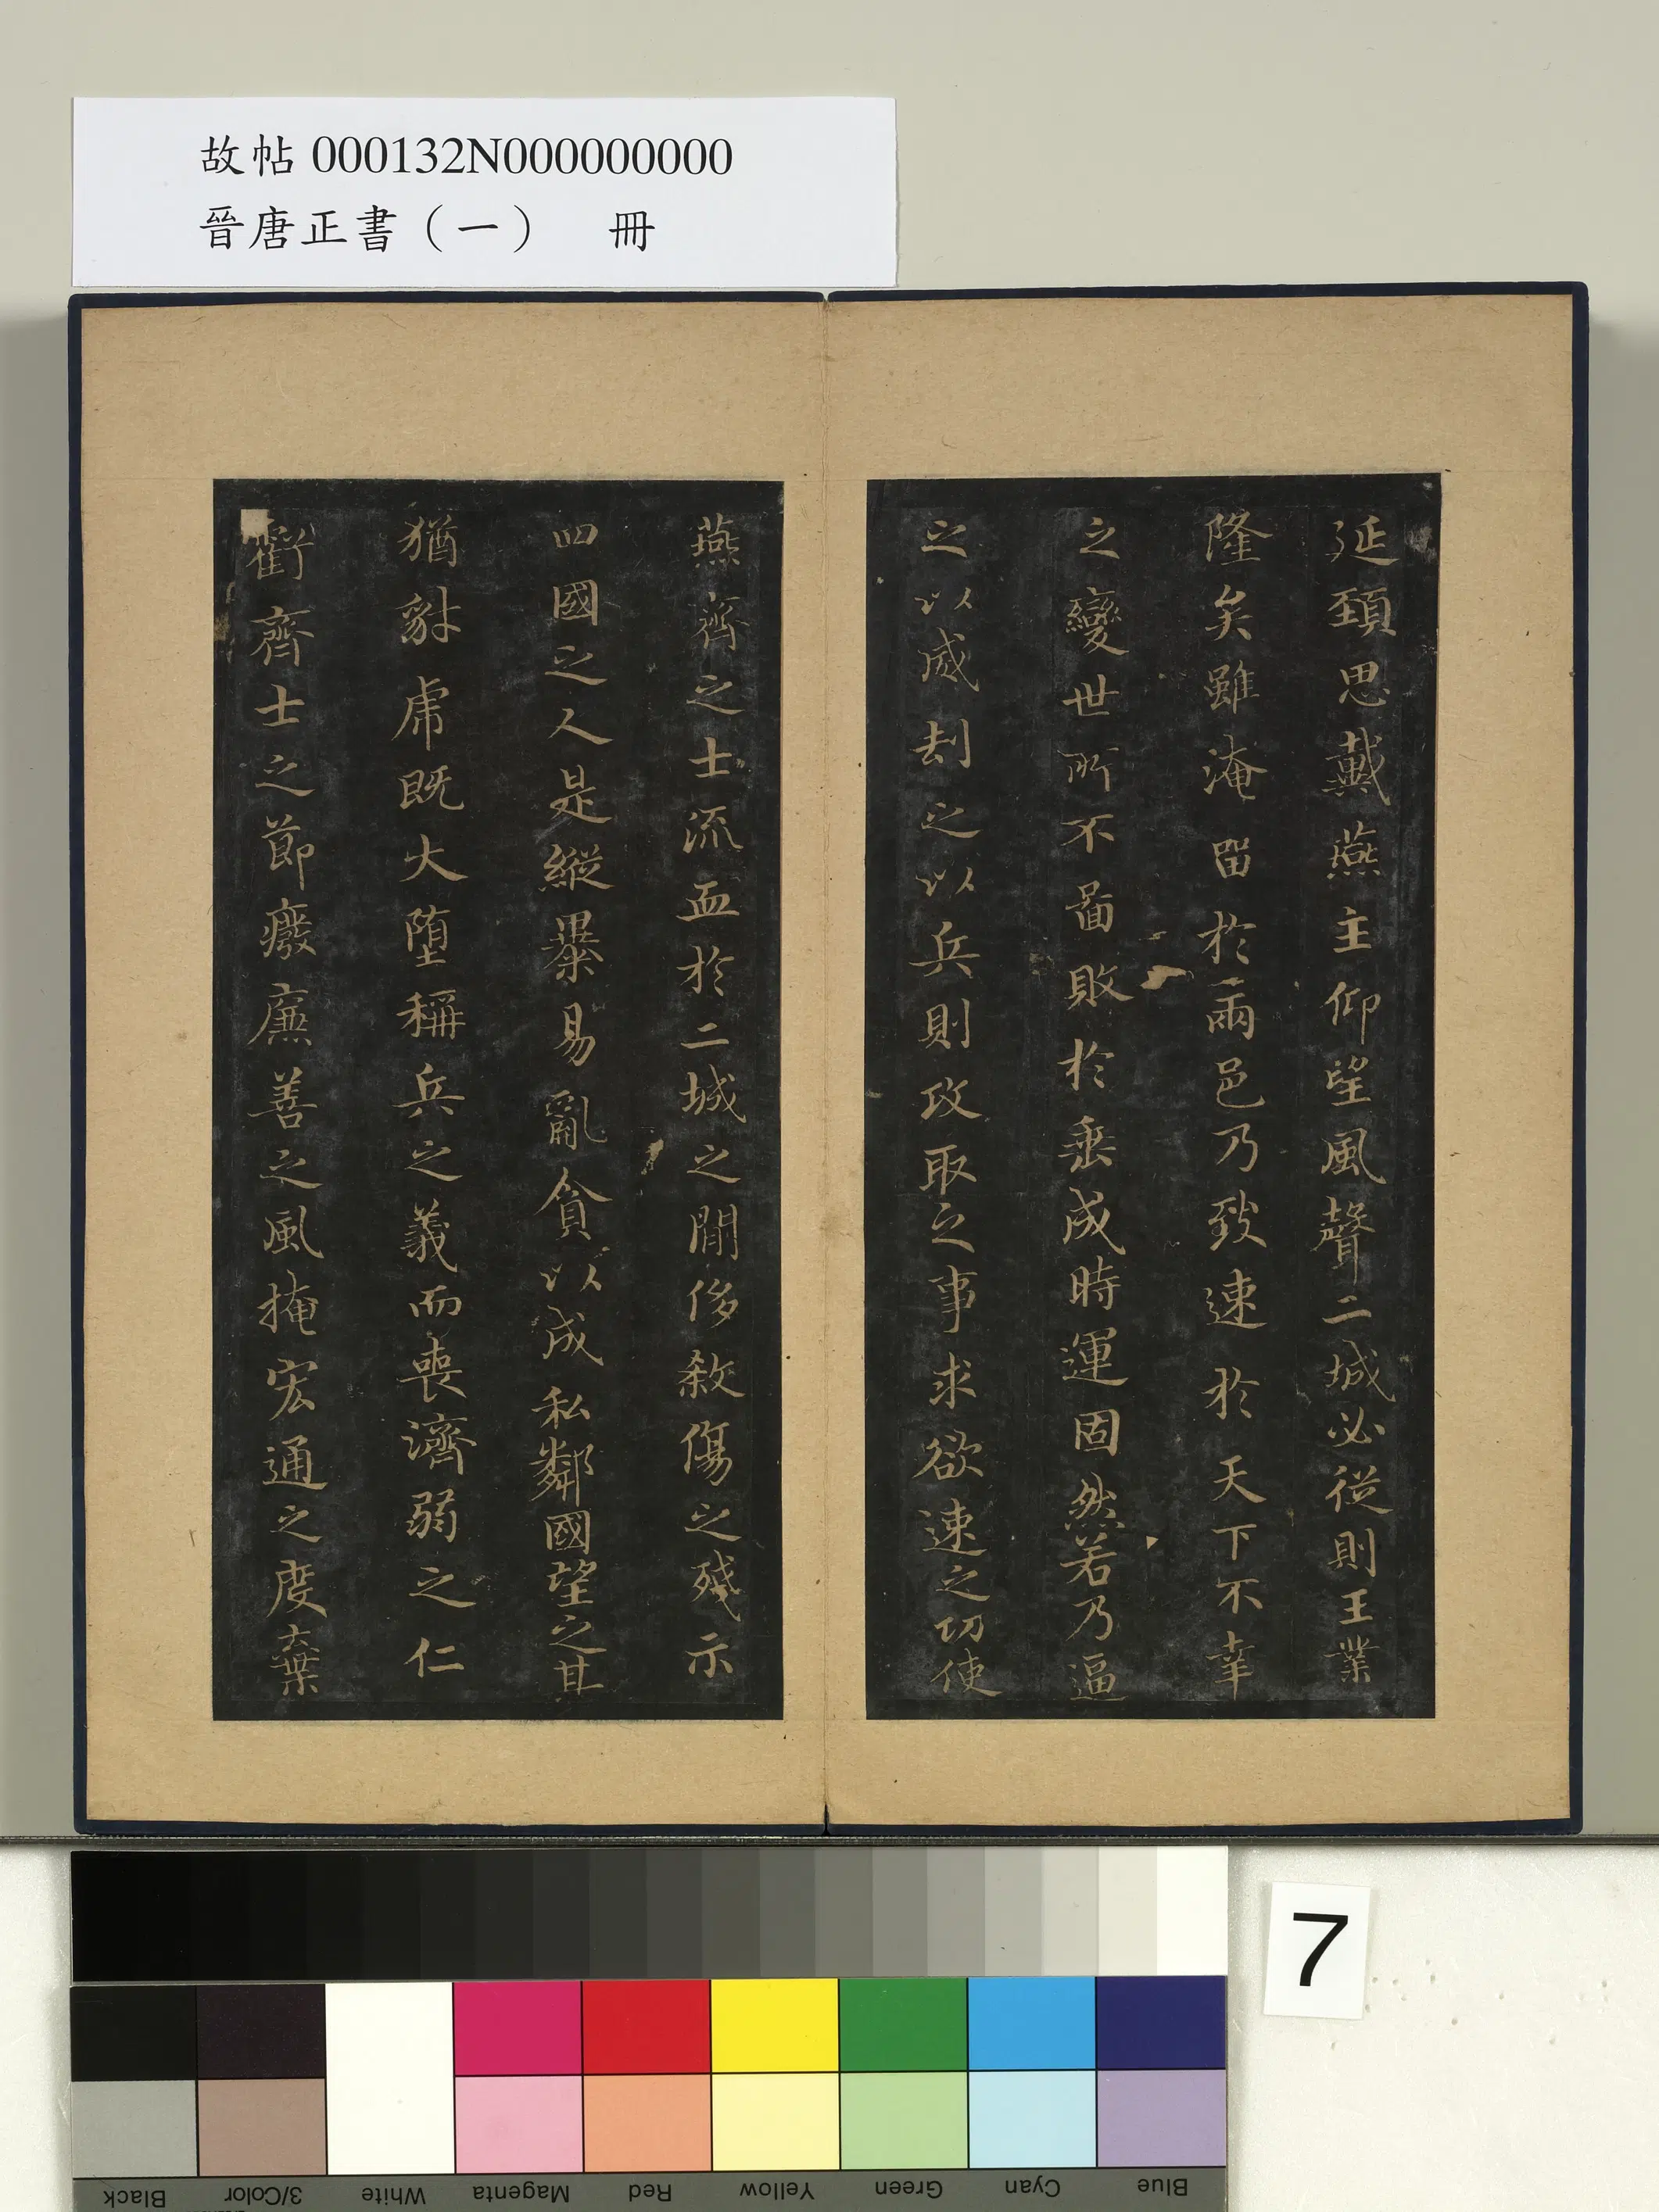 故帖 000132N000000000
晉唐正書（一）　冊
延頸思戴燕主仰望風聲二城必從則王業
隆矣雖淹留於兩邑乃致速於天下不幸
之變世所不啚敗於垂成時運固然若乃逼
之以威刦之以兵則攻取之事求欲速之功使
燕齊之士流血於二城之閒侈殺傷之殘示
四國之人是縱暴易亂貪以成私鄰國望之其
猶豺虎既大墮稱兵之義而喪濟弱之仁
虧齊士之節癈廉善之風掩宏通之度棄
7
Black
3/Color
White
Magenta
Red
Yellow
Green
Cyan
Blue